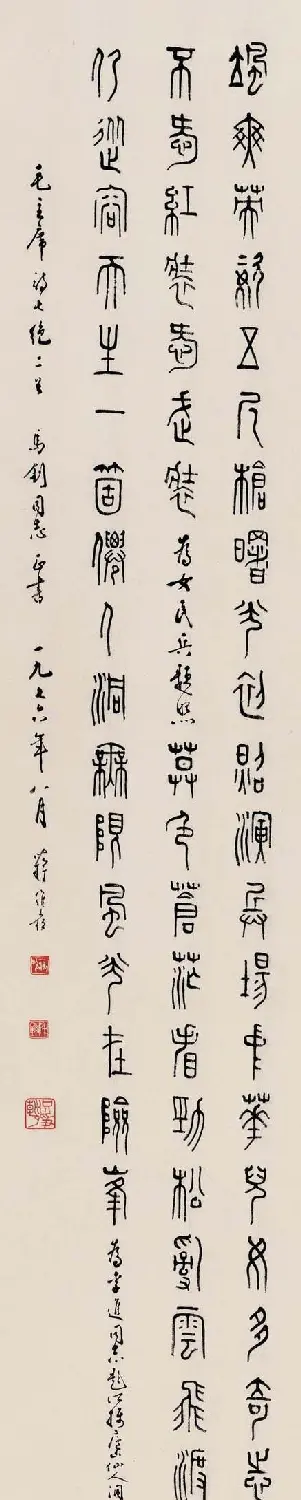 颯爽英姿五尺槍曙光初照演兵場中華兒女多奇志
不愛紅裝愛武裝為女民兵題照暮色蒼茫看勁松亂雲飛渡
仍從容天生一箇僊人洞無限風光在險峯為李進同志題所攝廬山仙人洞
毛主席詩七絕二首 馬釗同志正書 一九七六年八月 蔣維崧